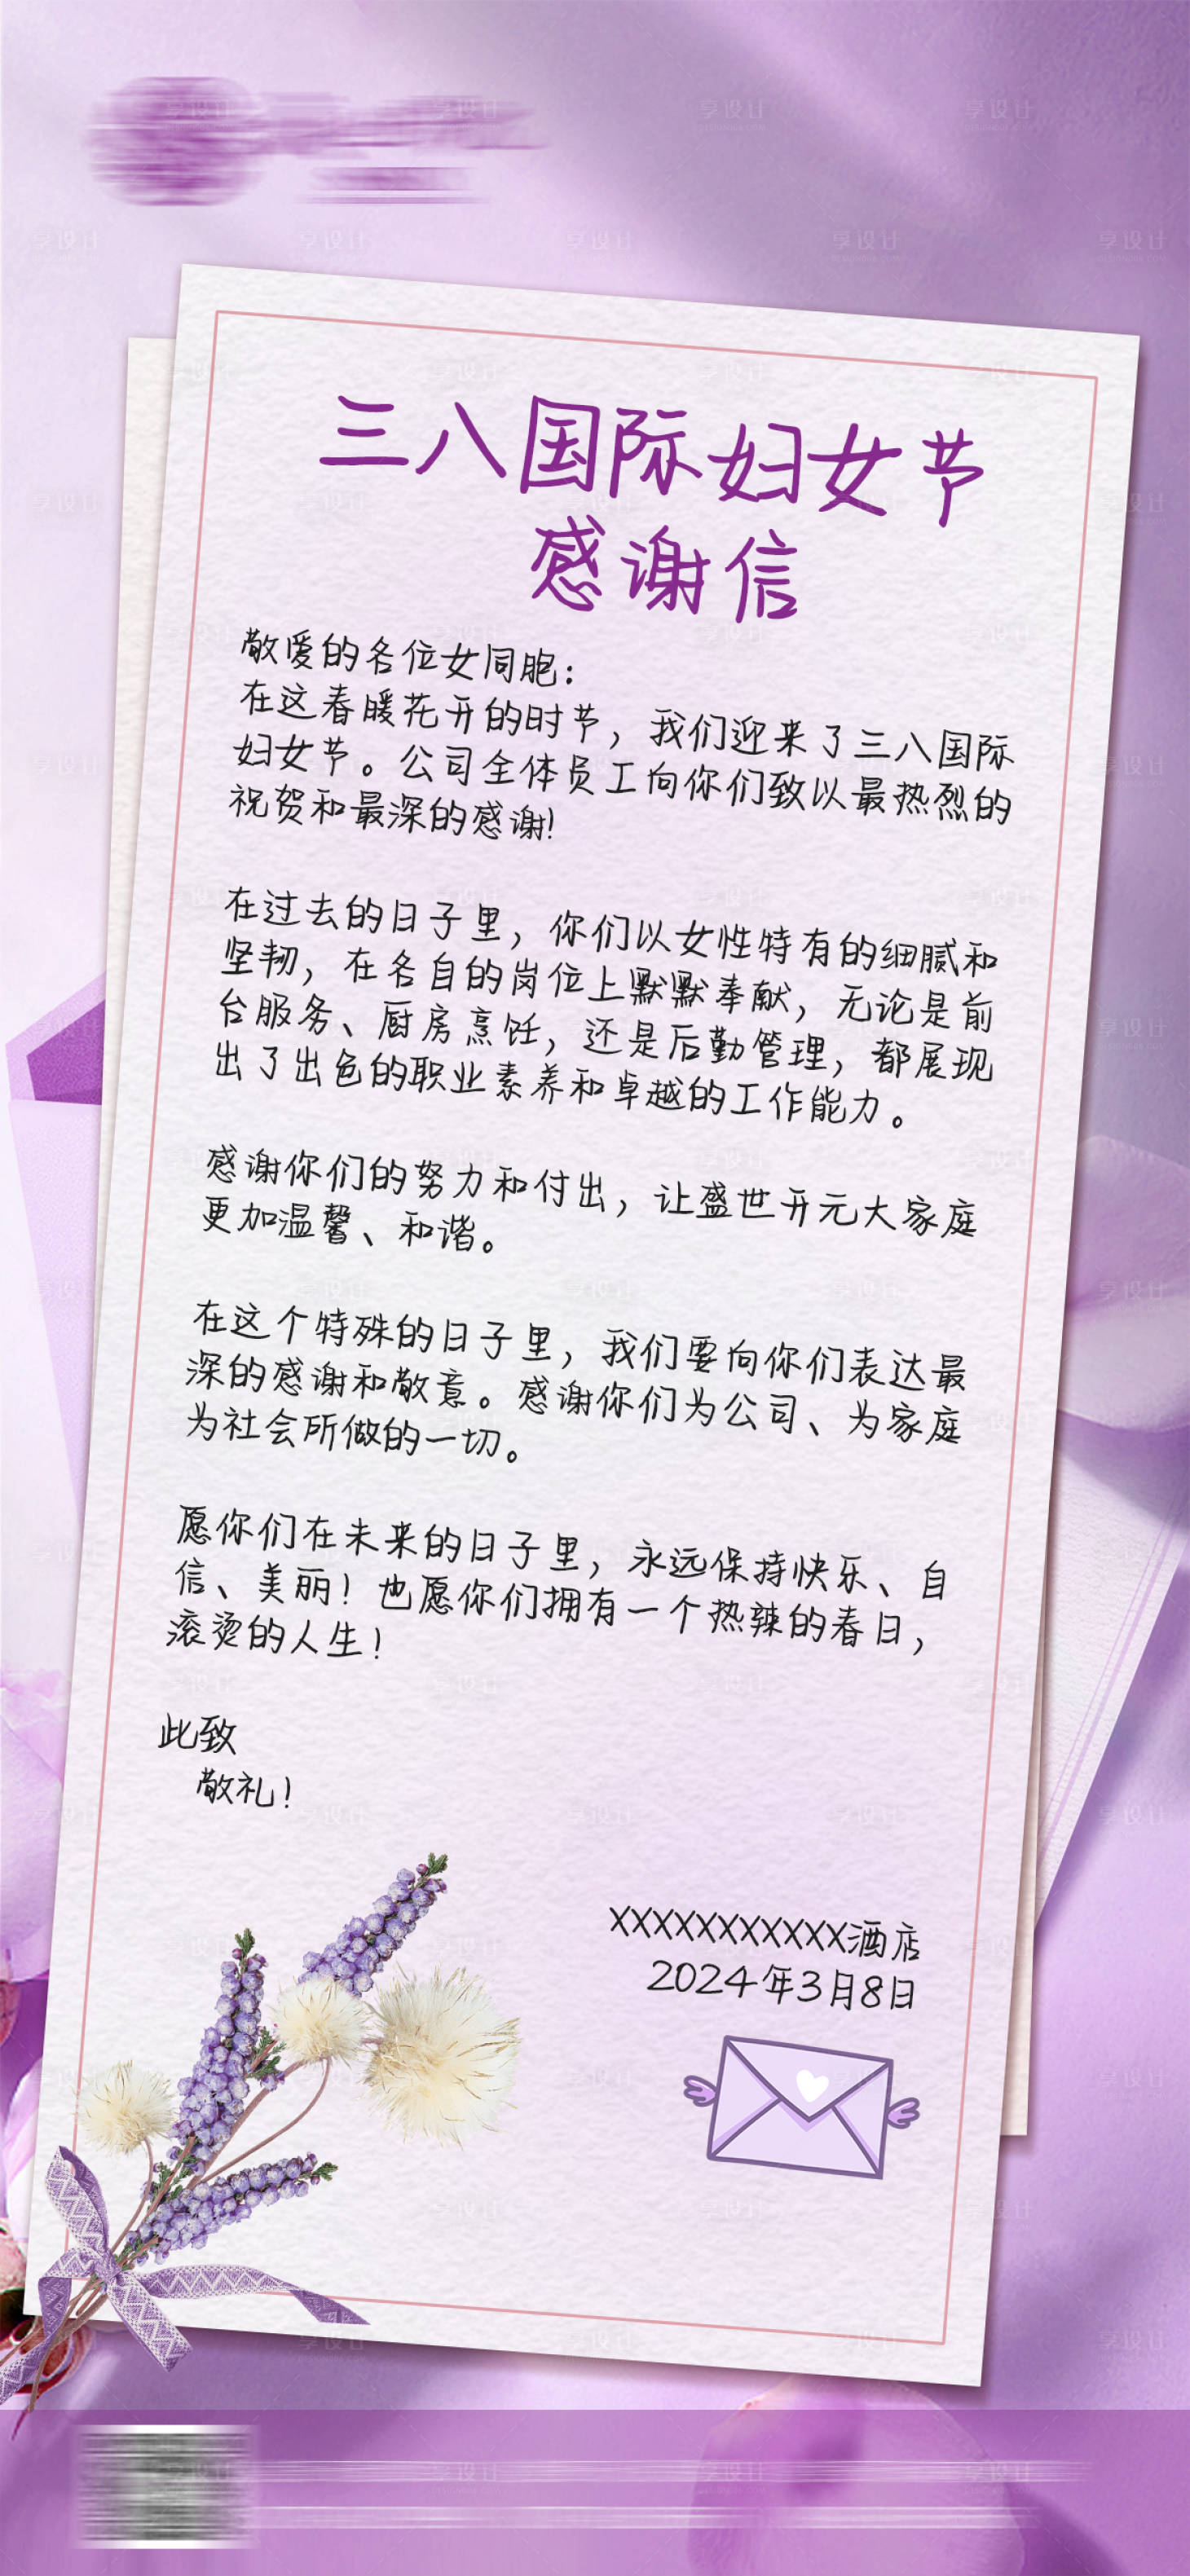 三八国际妇女节
感谢信
敬爱的各位女同胞：
在这春暖花开的时节，我们迎来了三八国际
妇女节。公司全体员工向你们致以最热烈的
祝贺和最深的感谢！
在过去的日子里，你们以女性特有的细腻和
坚韧，在各自的岗位上默默奉献，无论是前
台服务、厨房烹饪，还是后勤管理，都展现
出了出色的职业素养和卓越的工作能力。
感谢你们的努力和付出，让盛世开元大家庭
更加温馨、和谐。
在这个特殊的日子里，我们要向你们表达最
深的感谢和敬意。感谢你们为公司、为家庭
为社会所做的一切。
愿你们在未来的日子里，永远保持快乐、自
信、美丽！也愿你们拥有一个热辣的春日，
滚烫的人生！
此致
敬礼！
XXXXXXXXXXX酒店
2024年3月8日
享设计